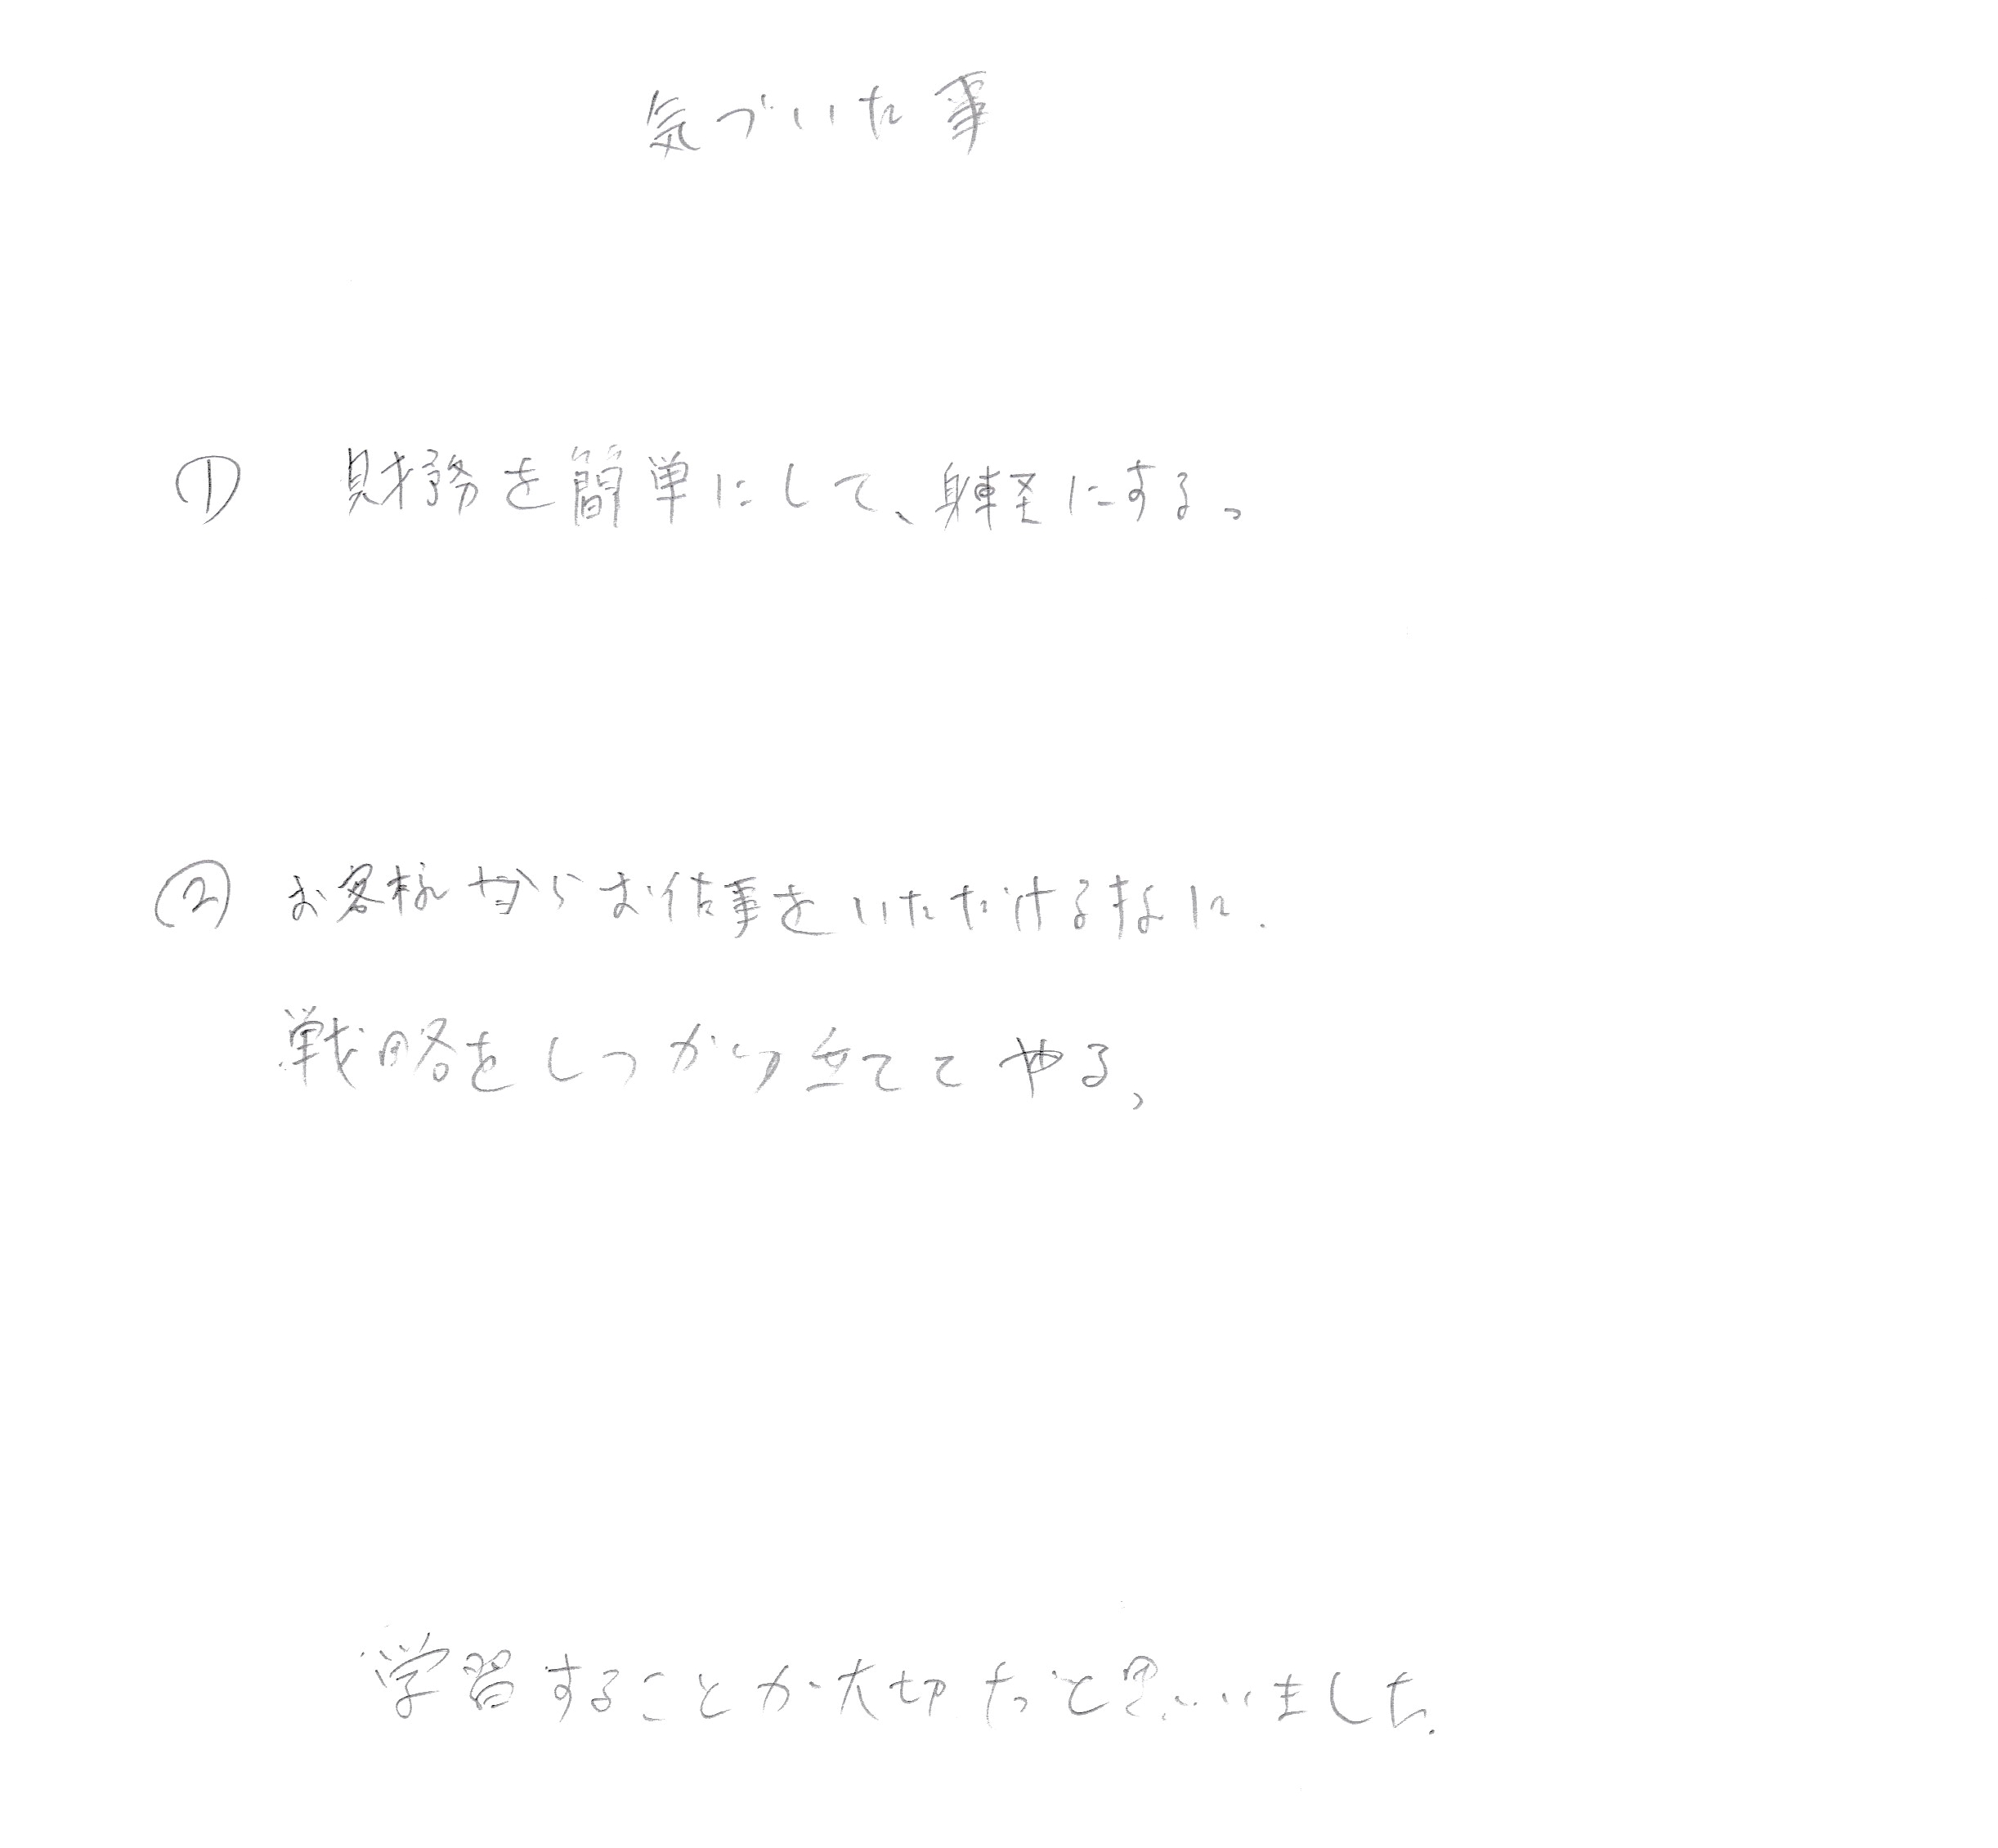 気づいた事
① 財務を簡単にして、身軽にする。
② お客様からお仕事をいただけるように、
戦略をしっかり立ててやる、
学習することが大切だと思いました。